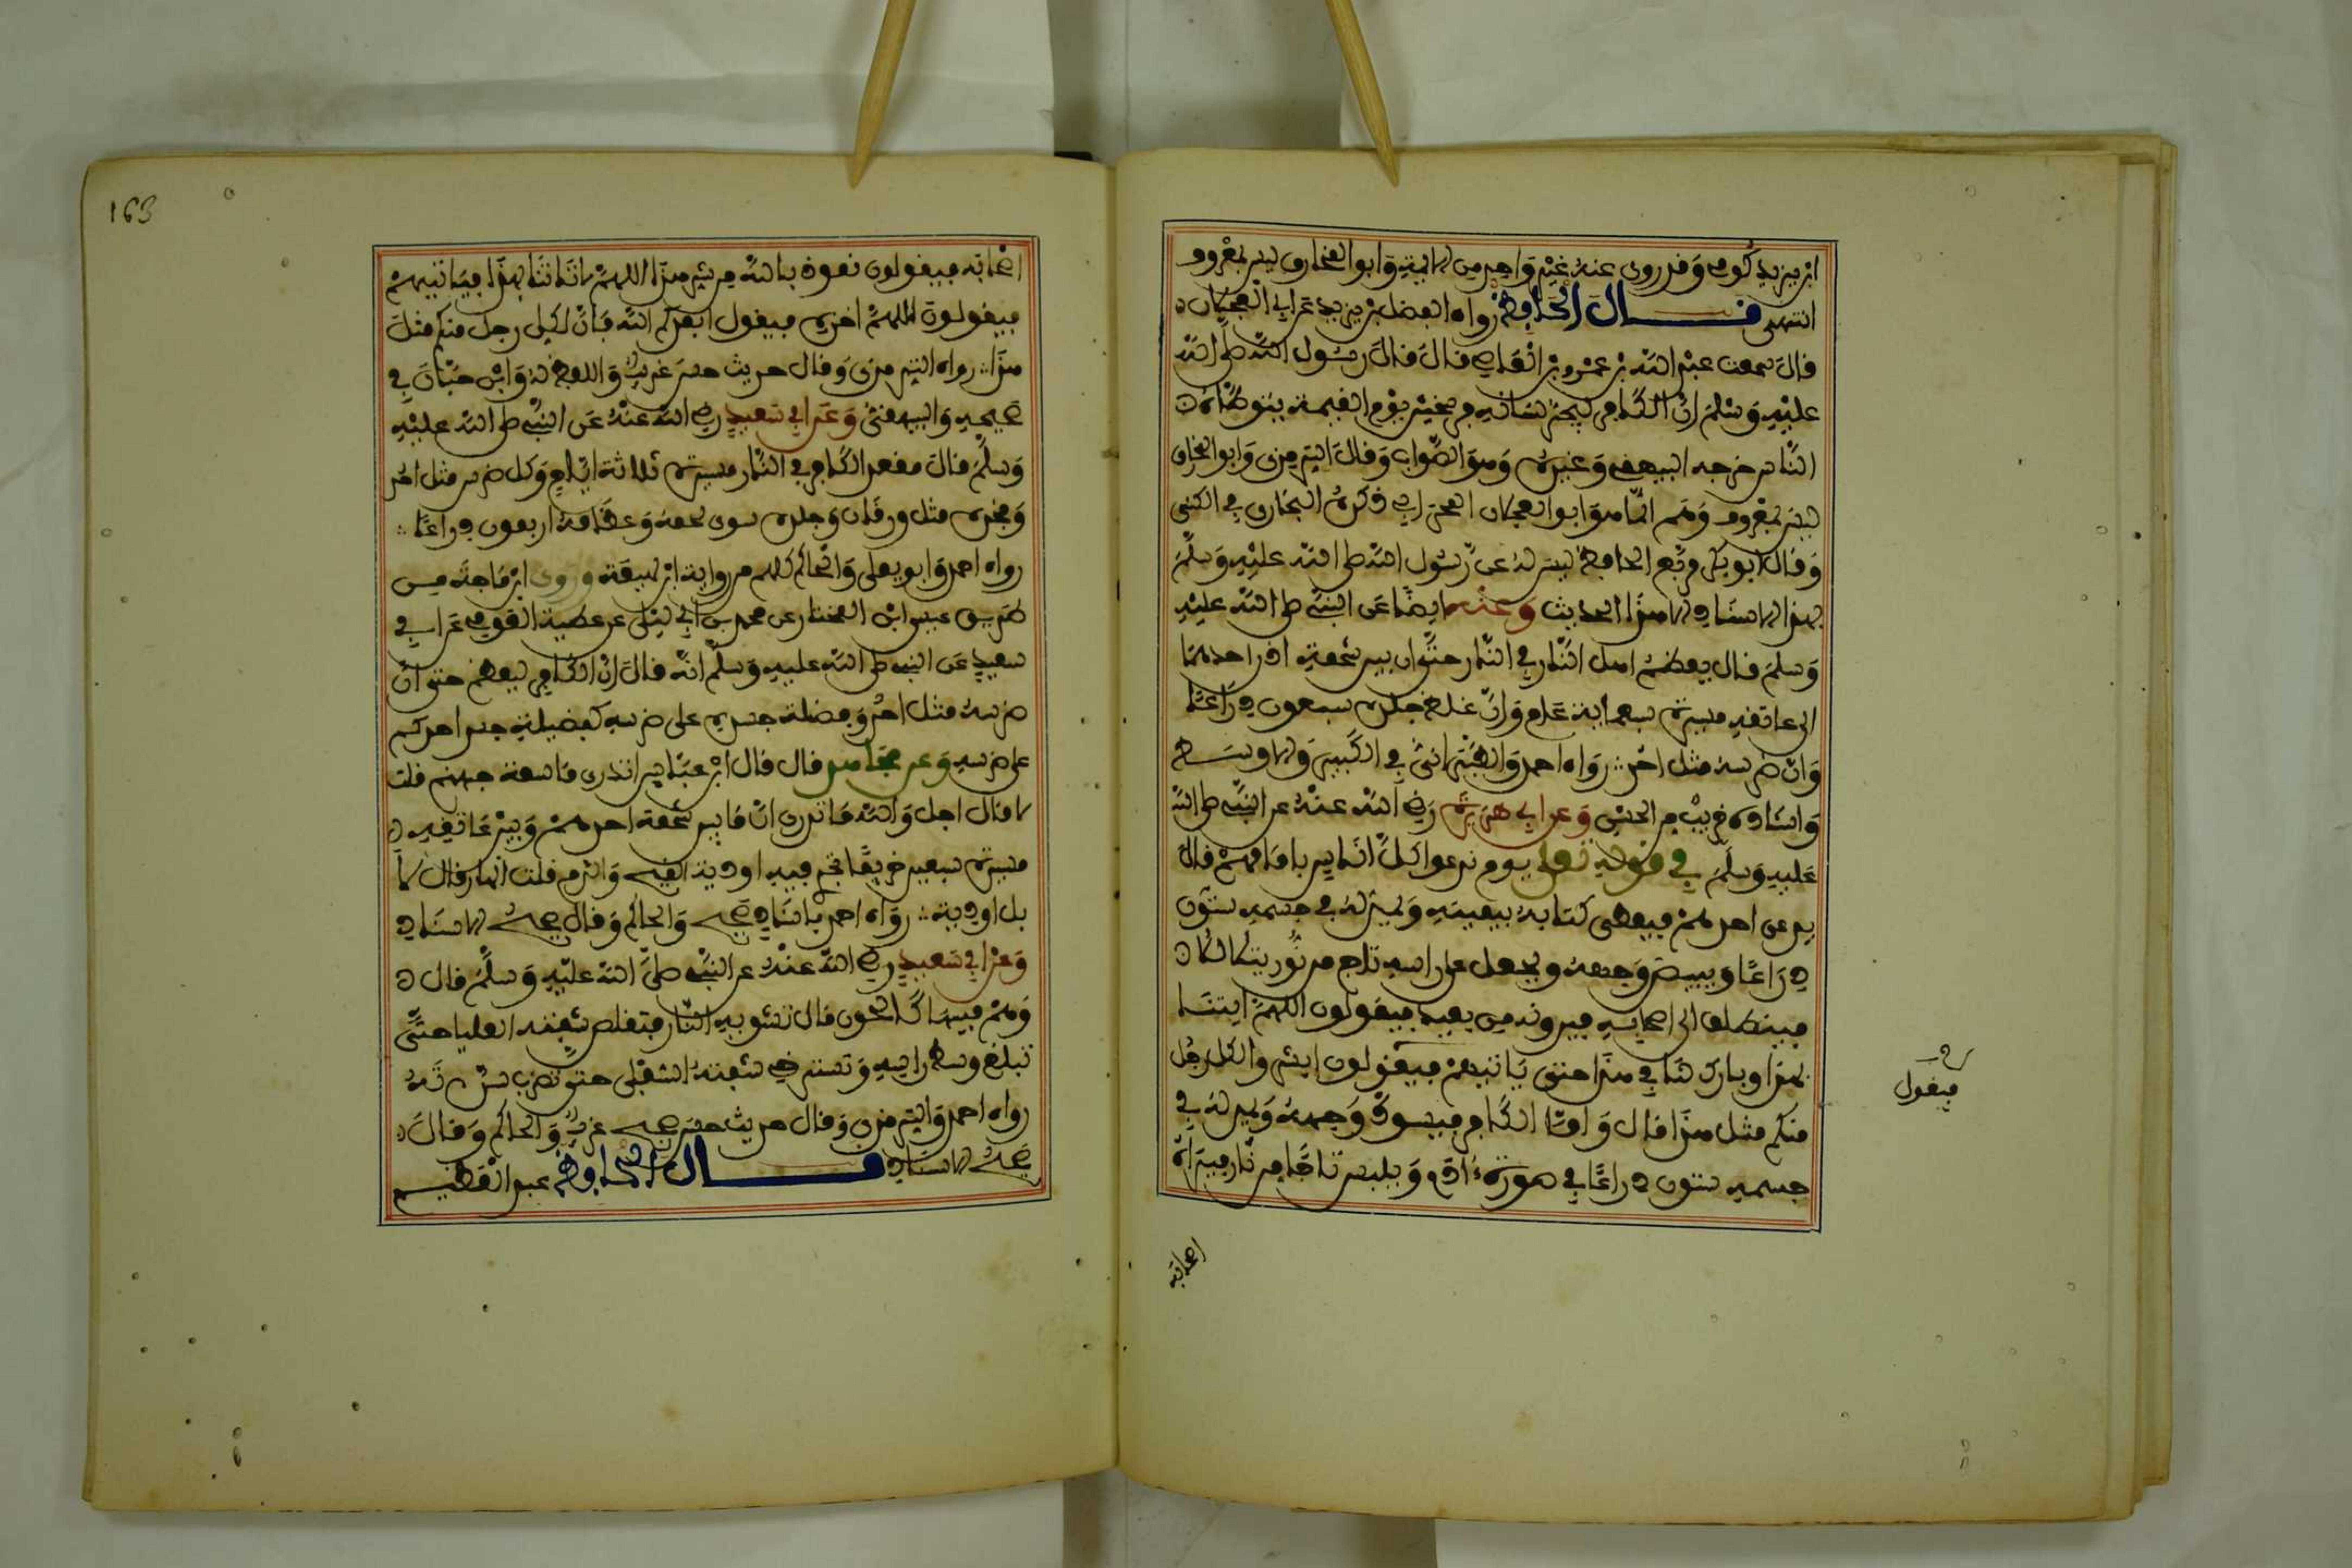 ابن يزيد كوفي وقد روى عنه غير واحد من الايمة وابو المخارق ليس بمعروف
انتهى قال الحافظ رواه الفضل بن يزيد عن ابي العجلان
قال سمعت عبد الله بن عمرو بن العاصي قال قال رسول الله صلى الله
عليه وسلم ان الكافر ليجر لسانه فرسخين يوم القيمة يتوطؤه
الناس خرجه البيهقي وغيره وهو الصواب وقال الترمذي وابو المخارق
ليس بمعروف وهم انما هو ابو العجلان المحاربي ذكره البخاري في الكنى
وقال ابو بكر مربع الحافظ ليس له عن رسول الله صلى الله عليه وسلم
بهذا الاسناد الا هذا الحديث وعنه ايضا عن النبي صلى الله عليه
وسلم قال يعظم اهل النار في النار حتى ان بين شحمة اذن احدهما
الى عاتقه مسيرة سبعماية عام وان غلظ جلده سبعون ذراعا
وان ضرسه مثل احد رواه احمد والطبراني في الكبير والاوسط
واسناده قريب من الحسن وعن ابي هريرة رضي الله عنه عن النبي صلى الله
عليه وسلم في قوله تعلى يوم ندعوا كل اناس بامامهم قال
يدعى احدهم فيعطى كتابه بيمينه ويمد له في جسمه ستون
ذراعا ويبيض وجهه ويجعل على راسه تاج من نور يتلالا
فينطلق الى اصحابه فيرونه من بعيد فيقولون اللهم ايتنا
بهذا وبارك لنا في هذا حتى ياتيهم فيقولون ابشروا لكل رجل
منكم مثل هذا قال واما الكافر فيسود وجهه ويمد له في
جسمه ستون ذراعا في صورة ءادم ويلبس تاجا من نار فيراه
فيقول
اصحابه
163
اصحابه فيقولون نعوذ بالله من شر هذا اللهم لا تاتنا بهذا فياتيهم
فيقولون اللهم اخزه فيقول ابعدكم الله فان لكل رجل منكم مثل
هذا رواه الترمذي وقال حديث حسن غريب واللفظ له وابن حبان في
صحيحه والبيهقي وعن ابي سعيد رضي الله عنه عن النبي صلى الله عليه
وسلم قال مقعد الكافر في النار مسيرة ثلاثة ايام وكل ضرس مثل احد
وفخذه مثل ورقان وجلده سوى لحمه وعظامه اربعون ذراعا
رواه احمد وابو يعلى والحاكم كلهم من رواية ابن لهيعة وروى ابن ماجه من
طريق عيسى ابن المختار عن محمد بن ابي ليلى عن عطية العوفي عن ابي
سعيد عن النبي صلى الله عليه وسلم انه قال ان الكافر ليعظم حتى ان
ضرسه مثل احد وفضلة جسده على ضرسه كفضيلة جسد احدكم
على ضرسه وعن مجاهد قال قال ابن عباس اتدري ما سعة جهنم قلت
لا قال اجل والله ما تدري ان ما بين شحمة احدهم وبين عاتقه
مسيرة سبعين خريفا تجري فيه اودية القيح والدم قلت انهار قال لا
بل اودية رواه احمد باسناد صحيح والحاكم وقال صحيح الاسناد
وعن ابي سعيد رضي الله عنه عن النبي صلى الله عليه وسلم قال
وهم فيها كالحون قال تشويه النار فتقلص شفته العليا حتى
تبلغ وسط راسه وتسترخي شفته السفلى حتى تضرب سرته
رواه احمد والترمذي وقال حديث حسن صحيح غريب والحاكم وقال
صحيح الاسناد قال الحافظ عبد العظيم